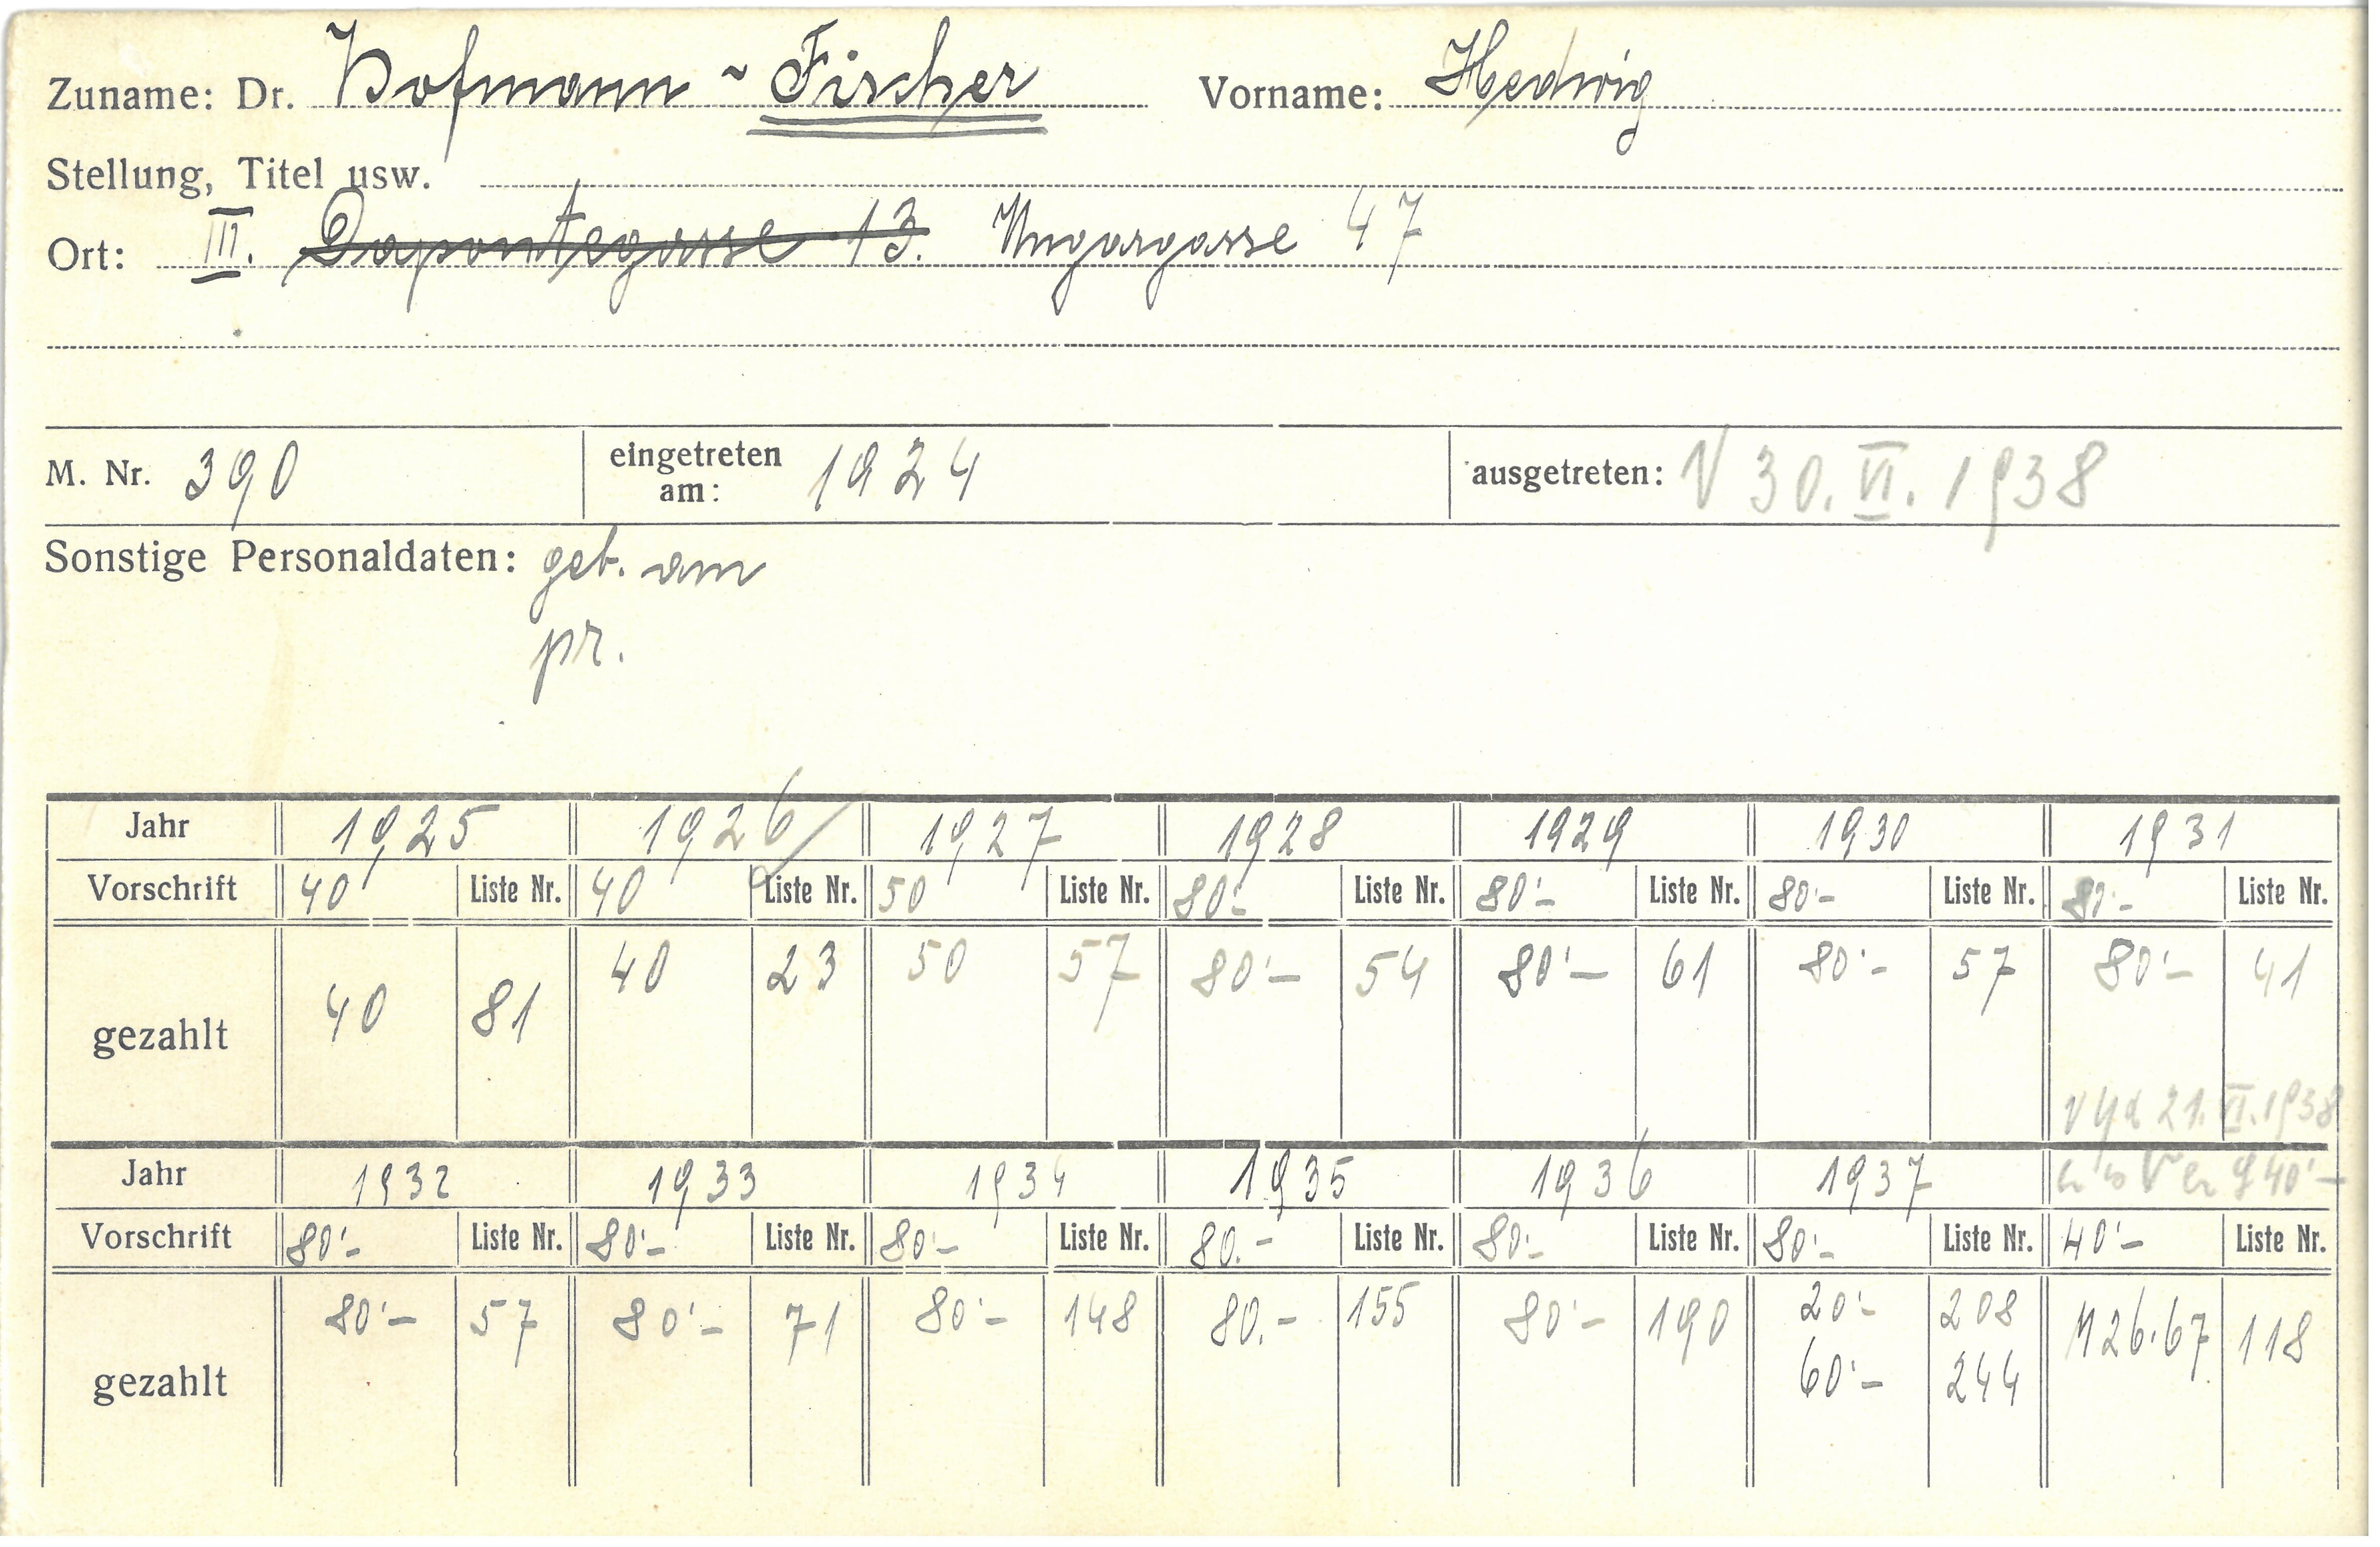 Zuname: Dr. Hofmann - Fischer Vorname: Hedwig
Stellung, Titel usw.
Ort: III. Dapontegasse 13. Ungargasse 47
M. Nr. 390 eingetreten am: 1924 ausgetreten: 30. VI. 1938
Sonstige Personaldaten: geb. am
pr.
Jahr 1925 1926 1927 1928 1929 1930 1931
Vorschrift 40 Liste Nr. 40 Liste Nr. 50 Liste Nr. 80'- Liste Nr. 80'- Liste Nr. 80'- Liste Nr. 80'- Liste Nr.
gezahlt 40 81 40 23 50 57 80'- 54 80'- 61 80'- 57 80'- 41
21. VI. 1938
Jahr 1932 1933 1934 1935 1936 1937 40'-
Vorschrift 80'- Liste Nr. 80'- Liste Nr. 80'- Liste Nr. 80.- Liste Nr. 80'- Liste Nr. 80'- Liste Nr. 40'- Liste Nr.
gezahlt 80'- 57 80'- 71 80'- 148 80.- 155 80'- 190 20'- 208 26.67 118
60'- 244